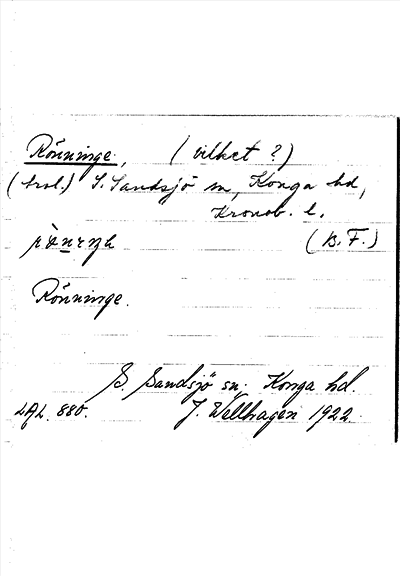 Rönninge, (vilket?)
(trol.) S. Sandsjö sn, Konga hd,
Kronob. l.
(B. F.)
Rönninge.
S. Sandsjö sn, Konga hd.
LAL. 880. J. Wellhagen 1922.